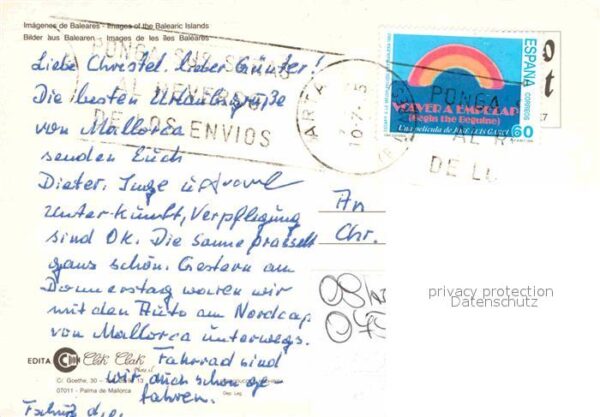 Imágenes de Baleares - Images of the Balearic Islands
Bilder aus Balearen - Images de les îles Baleares
PONGA SUS SEÑAS
AL REVERSO
DE LOS ENVIOS
ARTA
10-7-95
ESPAÑA
CORREOS
VOLVER A EMPEZAR
(Begin the Beguine)
Una película de JOSÉ LUIS GARCI
60
PONGA
AL R
DE L
Liebe Christel, lieber Günter!
Die besten Urlaubsgrüße
von Mallorca
senden Euch
Dieter, Inge u.
Unterkunft, Verpflegung
sind OK. Die Sonne prasselt
ganz schön. Gestern am
Donnerstag waren wir
mit dem Auto am Nordcap
von Mallorca unterwegs.
Fahrrad sind
wir auch schon
fahren.
Tschüß
An
Chr.
EDITA
Clik Clak
C/ Goethe, 30
07011 - Palma de Mallorca
Dep. Leg.
privacy protection
Datenschutz